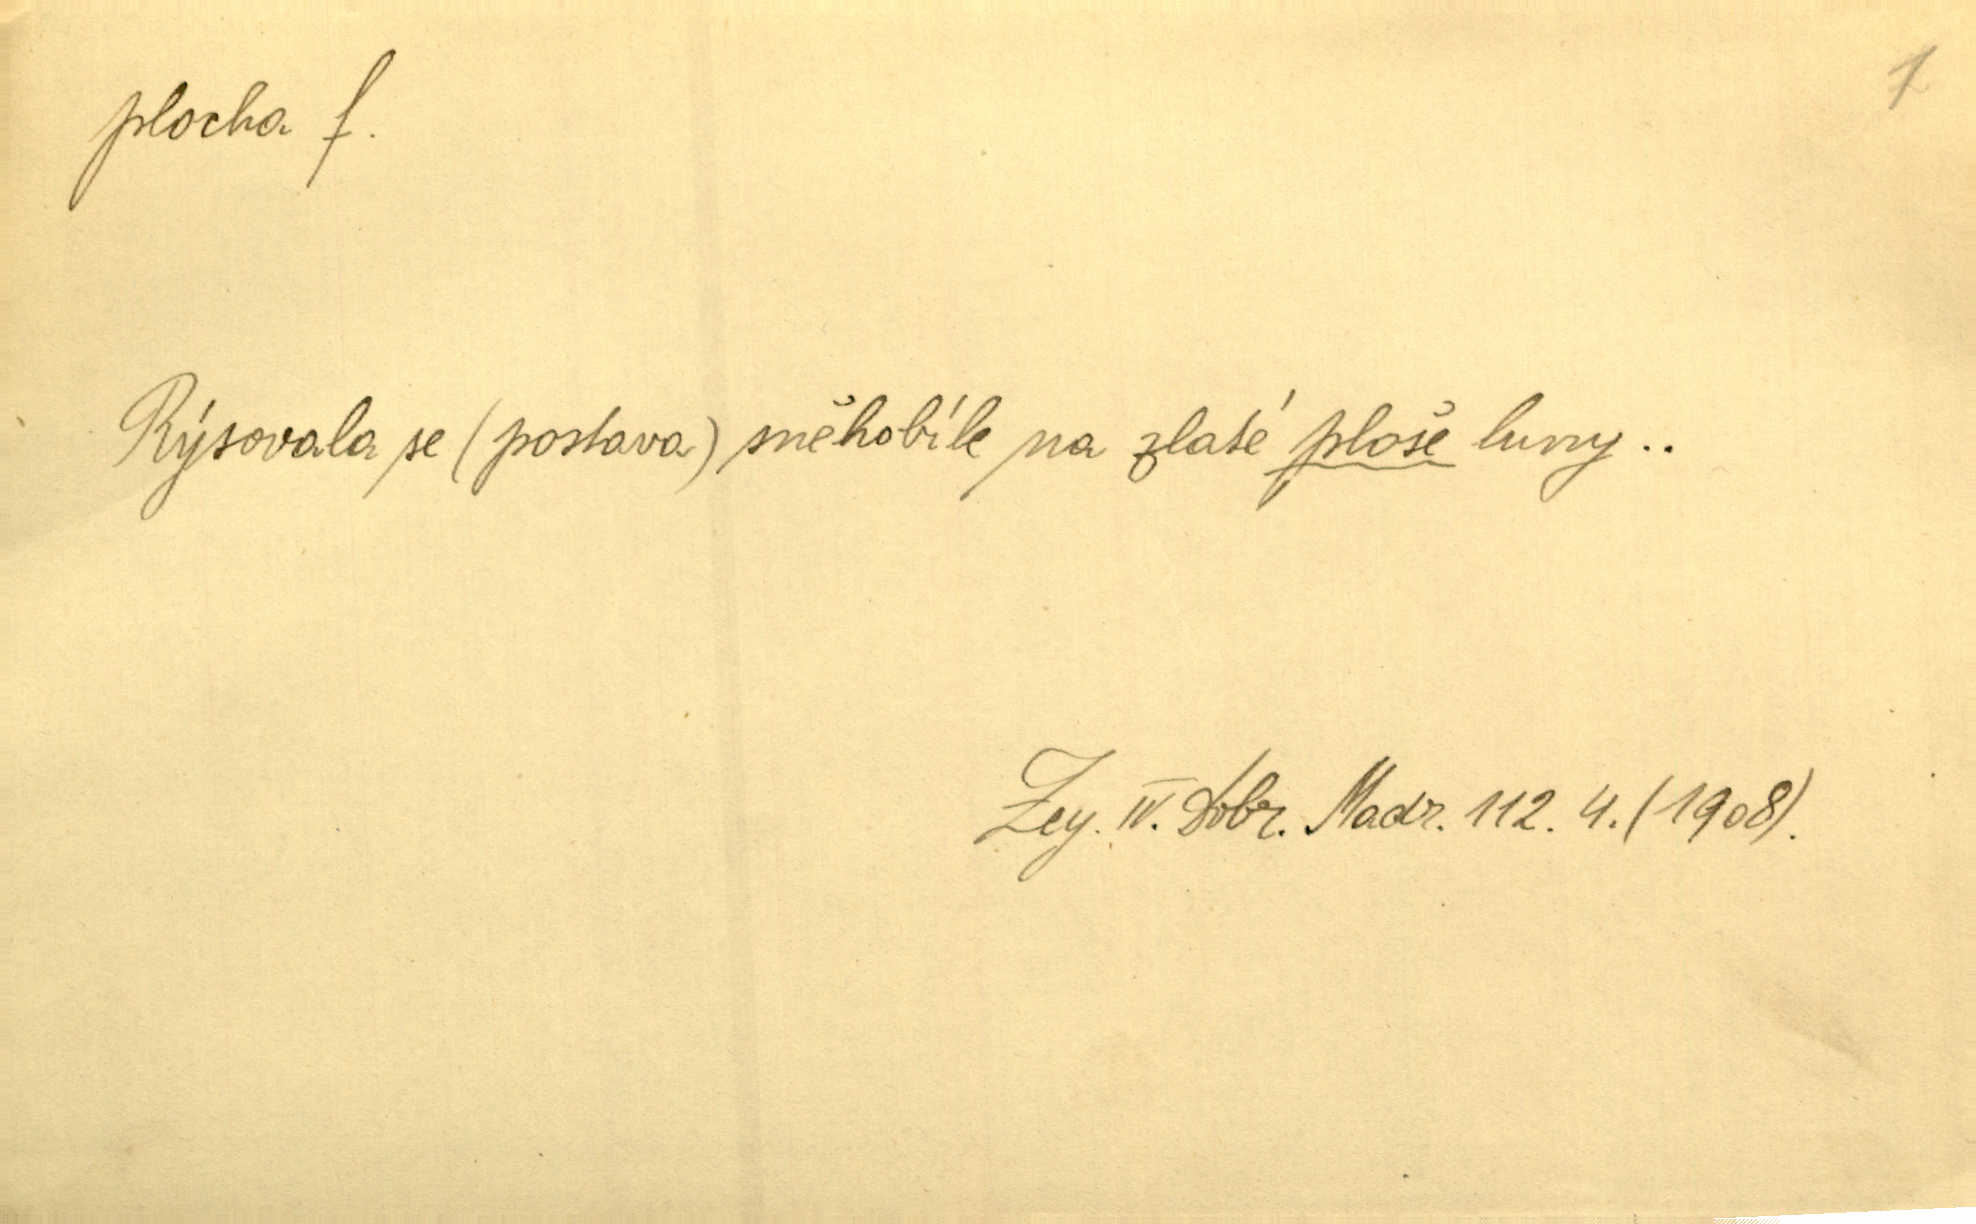 plocha f.
1
Rýsovala se (postava) sněhobíle na zlaté ploše luny..
Zey. IV. Dobr. Madr. 112. 4. (1908).